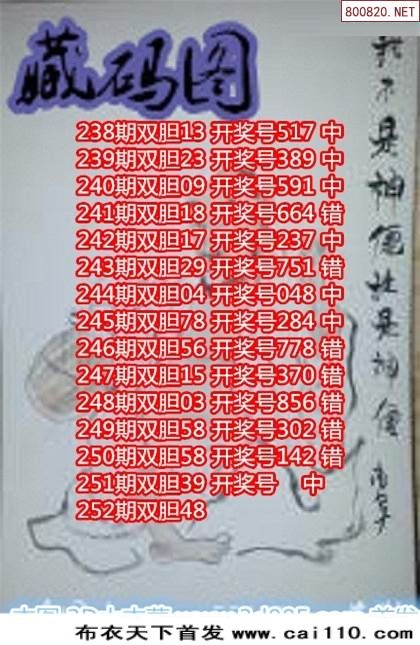 800820.NET
藏码图
我不是神仙胜是神仙
238期双胆13 开奖号517 中
239期双胆23 开奖号389 中
240期双胆09 开奖号591 中
241期双胆18 开奖号664 错
242期双胆17 开奖号237 中
243期双胆29 开奖号751 错
244期双胆04 开奖号048 中
245期双胆78 开奖号284 中
246期双胆56 开奖号778 错
247期双胆15 开奖号370 错
248期双胆03 开奖号856 错
249期双胆58 开奖号302 错
250期双胆58 开奖号142 错
251期双胆39 开奖号 中
252期双胆48
布衣天下首发 www.cai110.com